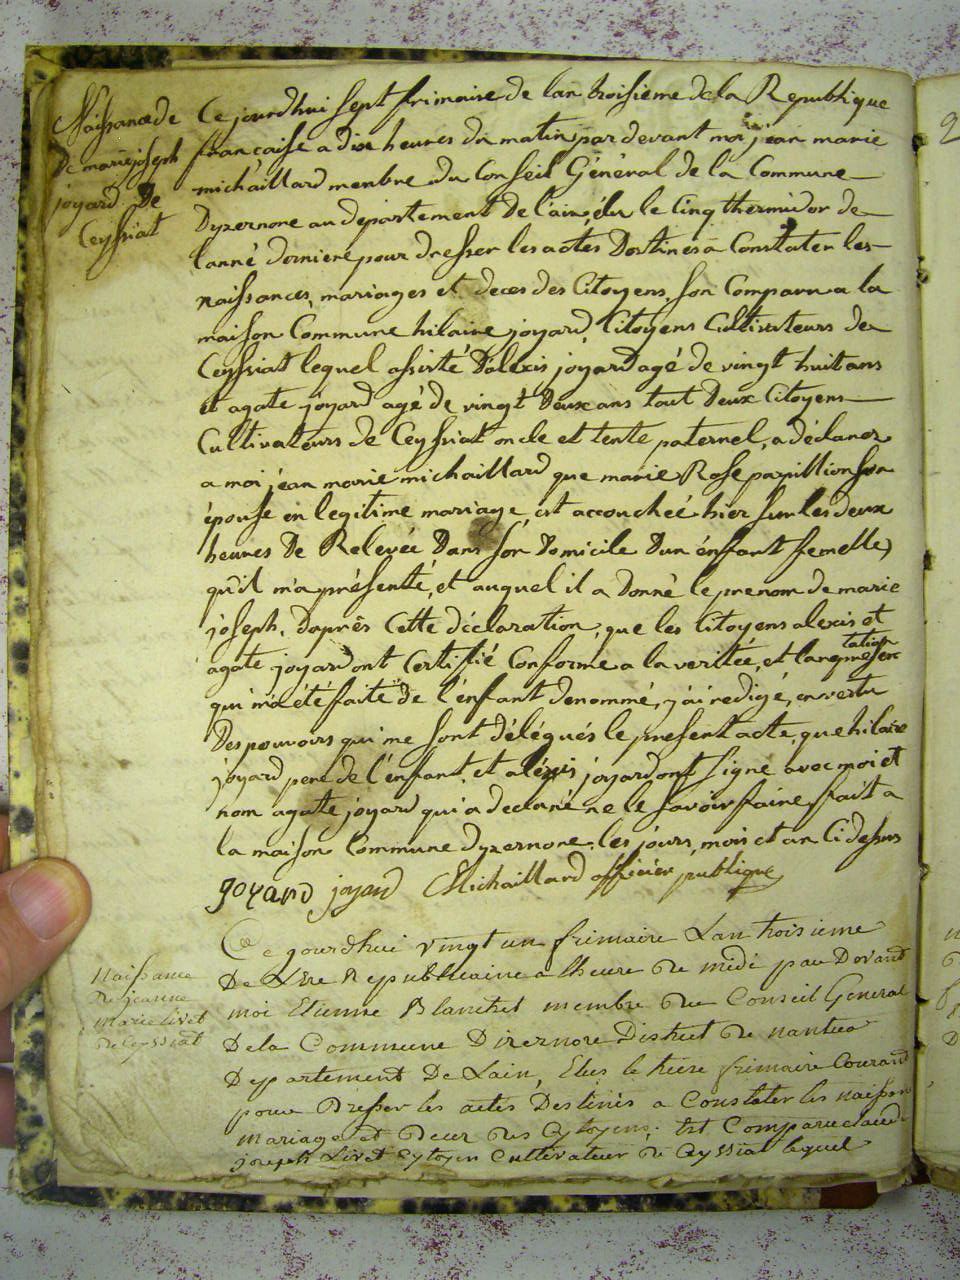 Naissance de
De marie joseph
joyard De
Ceyssiat
Ce jourdhui sept frimaire de lan troisieme de la Republique
francaise a dix heures du matin par devant moi jean marie
michaillard menbre du Conseil Général de la Commune
Dyzernore au departement de l'ain, élu le Cinq thermidor de
lanné derniere pour dresser les actes Destines a Constater les
naissances, mariages et deces des Citoyens, son Comparu a la
maison Commune hilaire joyard, Citoyens Cultivateurs de
Ceyssiat lequel assisté D'alexis joyard agé de vingt huit ans
et agate joyard agé de vingt Deux ans tout Deux Citoyens
Cultivateurs de Ceyssiat oncle et tente paternel, a déclarer
a moi jéan marie michaillard que marie Rose papillion son
épouse en legitime mariage, est accouchée hier sur les deux
heures De Relevée Dans son Domicile Dun énfant femelle,
qu'il m'a présenté, et auquel il a Donné le prenom de marie
joseph. D'aprês Cette déclaration, que les Citoyens alexis et
agate joyard ont Certifié Conforme a la veritée, et la
tation
qui m'a été faite de l'énfant denommé, j'ai redigé, en vertu
Des pouvoirs qui me sont délégués le present acte, que hilaire
joyard pere de l'enfant, et aléxis joyard ont signe avec moi et
nom agate joyard qui a declaré ne le savoir faire, fait a
la maison Commune Dyzernore. les jours, mois et an Ci dessus
joyard joyard Michaillard officier publique
Naissance
De jeanne
Marie livet
de Ceyssiat
Ce jourdhui vingt un frimaire Lan troisieme
De Lere Republicaine a lheure de midi par Devant
moi Etienne Blanchet membre du Conseil General
De la Commune Dizernore District de nantua
Departement De Lain, Elus le tiere frimaire Courant
pour Dresser les actes Destinés a Constater les naissan
mariage et deces des Cytoyens; Est Comparu claude
joseph Livet Cytoyen Cultivateur de Ceyssiat lequel